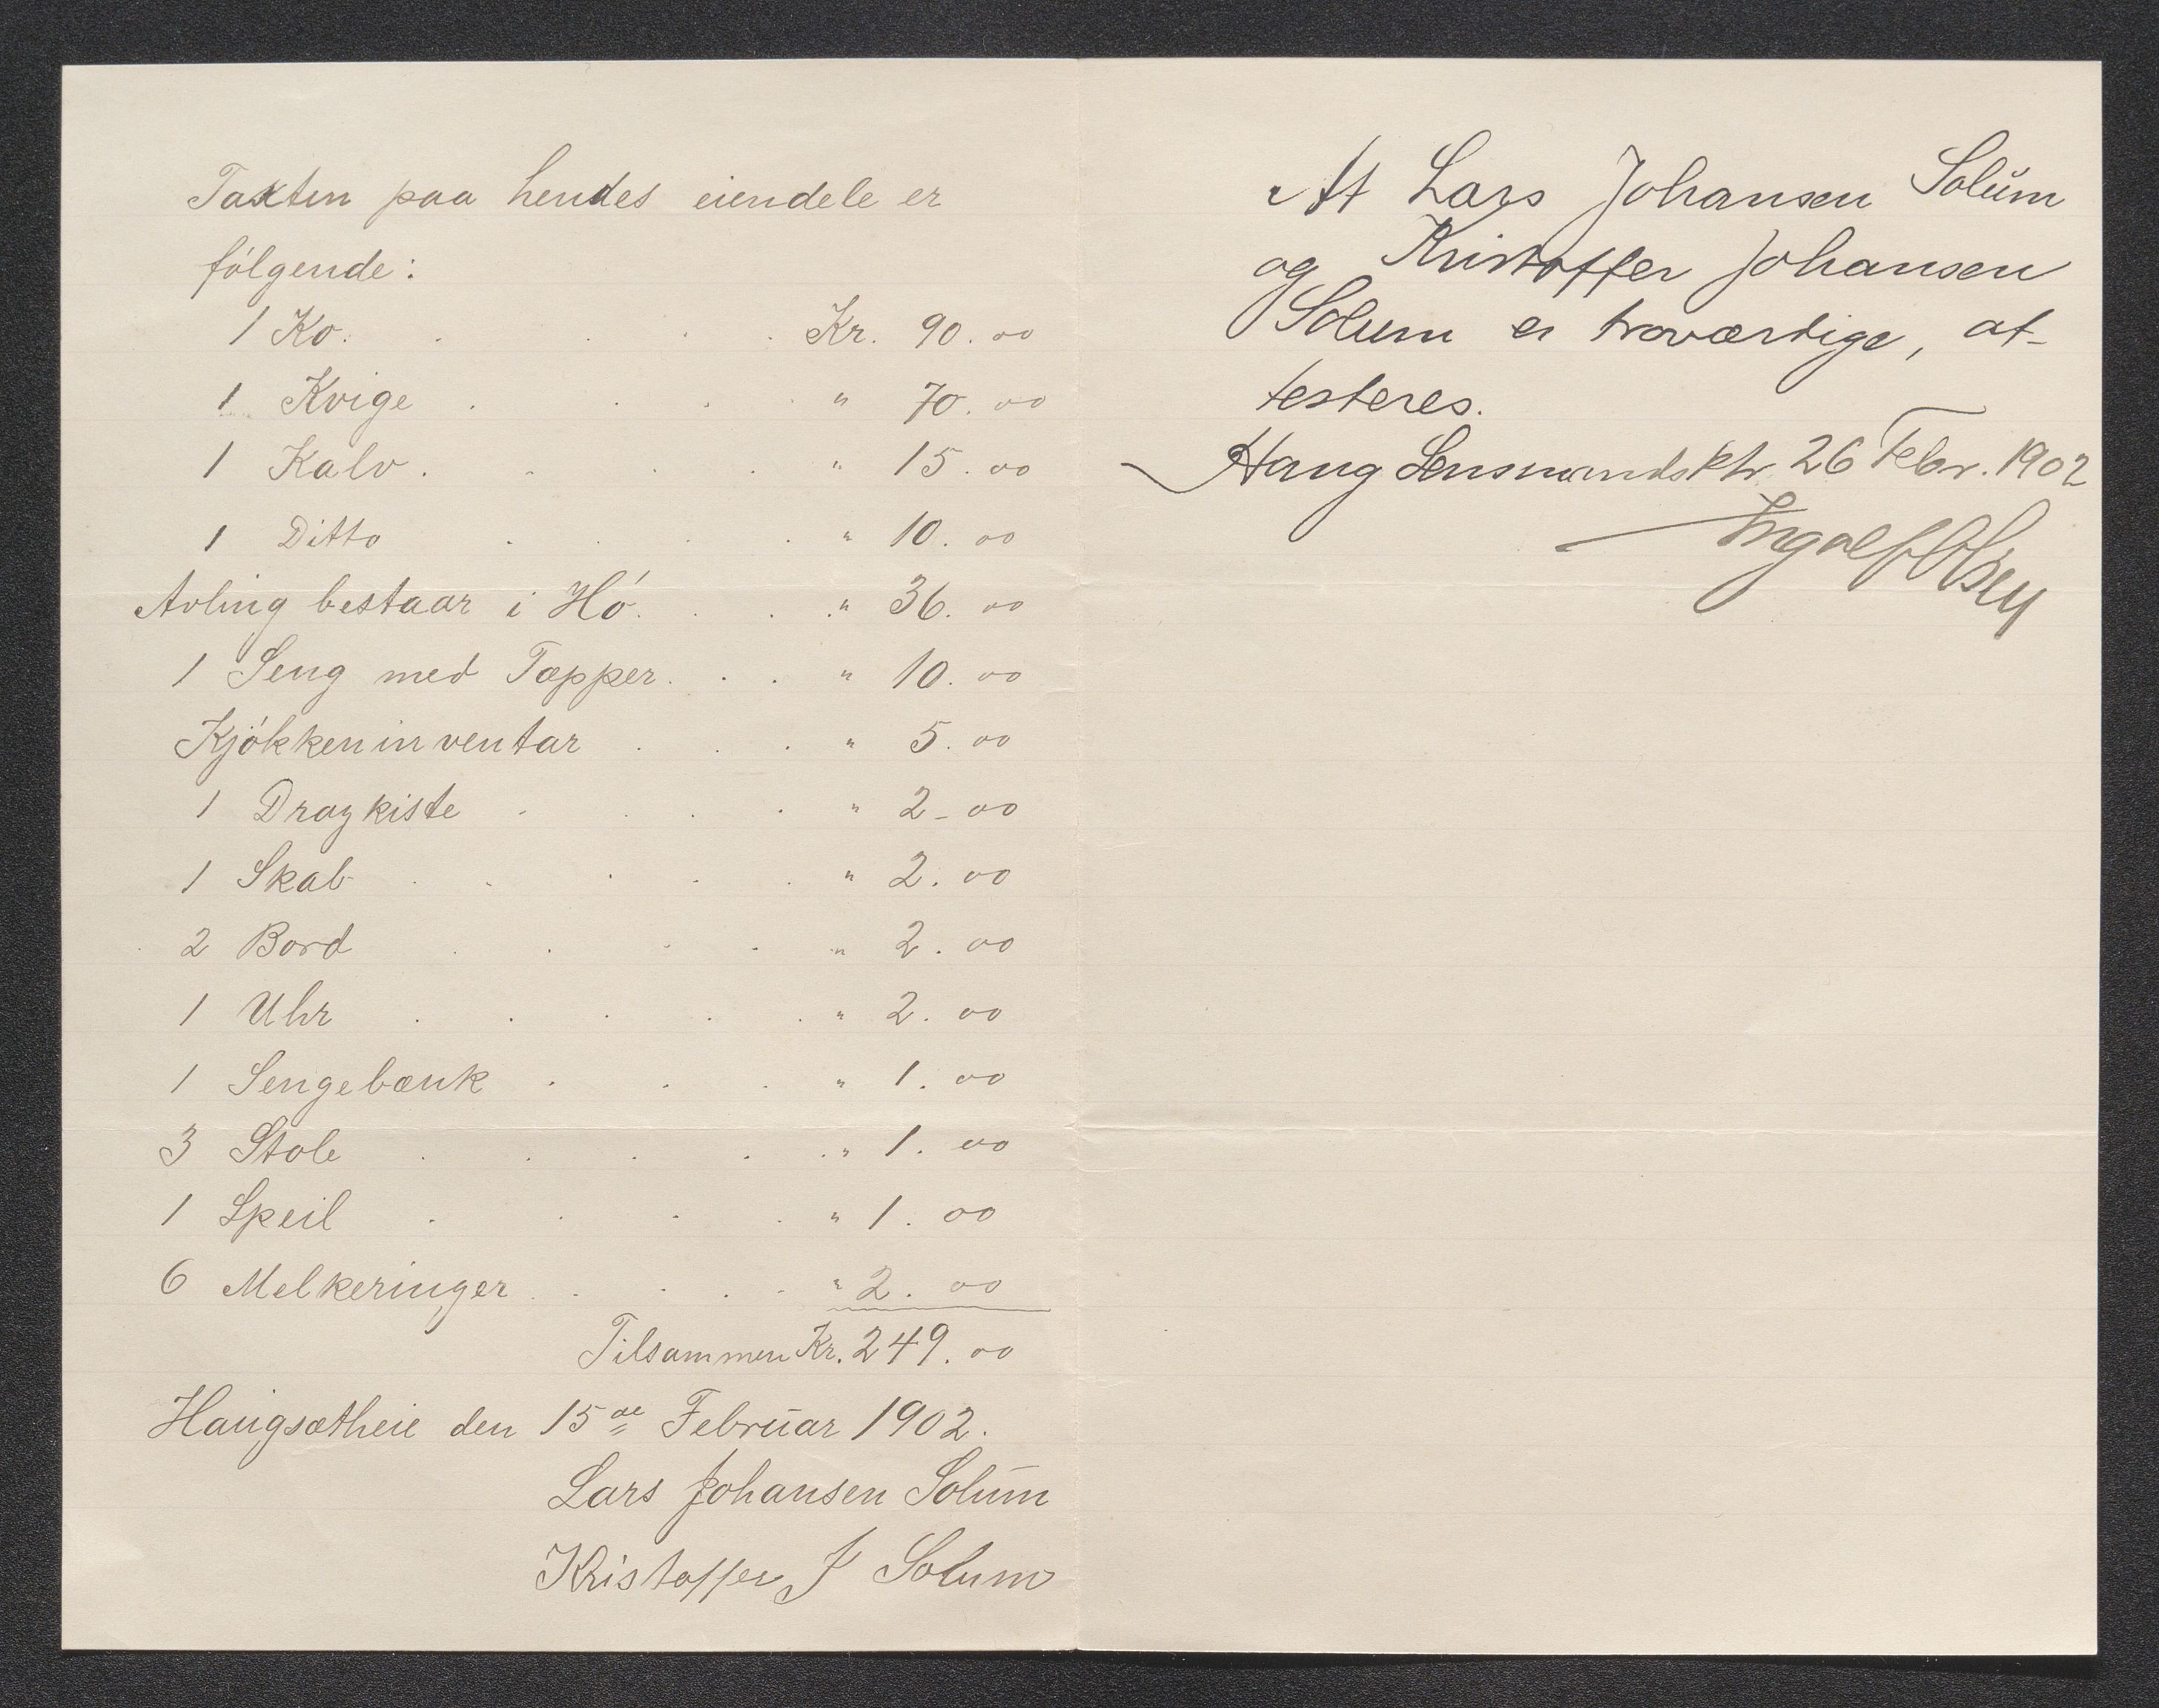 Taxten paa hendes eiendele er
følgende:
1 Ko. . . . . Kr. 90.00
1 Kvige . . . . " 70.00
1 Kalv . . . . " 15.00
1 Ditto . . . . . " 10.00
Avling bestaar i Hö . . . " 36.00
1 Seng med Tæpper . . . " 10.00
Kjökkeninventar . . . " 5.00
1 Dragkiste . . . . " 2-00
1 Skab . . . . . " 2.00
2 Bord . . . . " 2.00
1 Uhr . . . . . " 2.00
1 Sengebænk . . . " 1.00
3 Stole . . . . . " 1.00
1 Speil . . . . " 1.00
6 Melkeringer . . . . . " 2.00
Tilsammen Kr. 249.00
Haugsætheie den 15de Februar 1902.
Lars Johansen Solum
Kristoffer J Solum
At Lars Johansen Solum
og Kristoffer Johansen
Solum er troværdige, at-
testeres.
Haug Lensmandsktr. 26 Febr. 1902
Ingolf Olsen